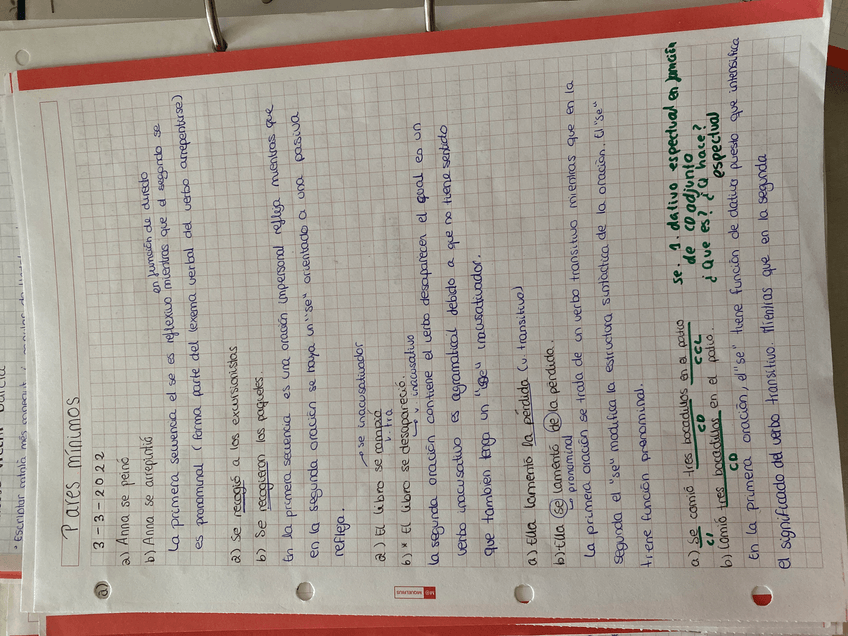 Pares mínimos
a) 3-3-2022
a) Anna se peinó
en función de directo
b) Anna se arrepintió
La primera secuencia el se es reflexivo mientras que el segundo se
es pronominal (forma parte del lexema verbal del verbo arrepentirse)
a) Se recogió a los excursionistas
b) Se recogieron los paquetes.
En la primera secuencia es una oración impersonal refleja mientras que
en la segunda oración se haya un "se" orientado a una pasiva
refleja.
→ se inacusativador
a) El libro se rompió
v. tra
b) * El libro se desapareció.
→ v inacusativo
la segunda oración contiene el verbo desaparecer el cual es un
verbo inacusativo es agramatical debido a que no tiene sentido
que también tenga un "se" inacusativador.
a) Ella lamentó la pérdida (v. transitivo)
b) Ella se lamentó de la pérdida.
pronominal
La primera oración se trata de un verbo transitivo mientras que en la
segunda el "se" modifica la estructura sintáctica de la oración. El "se"
tiene función pronominal.
a) Se comió tres bocadillos en el patio
CI CD CCL
b) Comió tres bocadillos en el patio.
CD
se. 1. dativo espectual en función
de CD adjunto
¿Que es? ¿Q hace?
espectual
En la primera oración, el "se" tiene función de dativo puesto que intensifica
el significado del verbo transitivo. Mientras que en la segunda